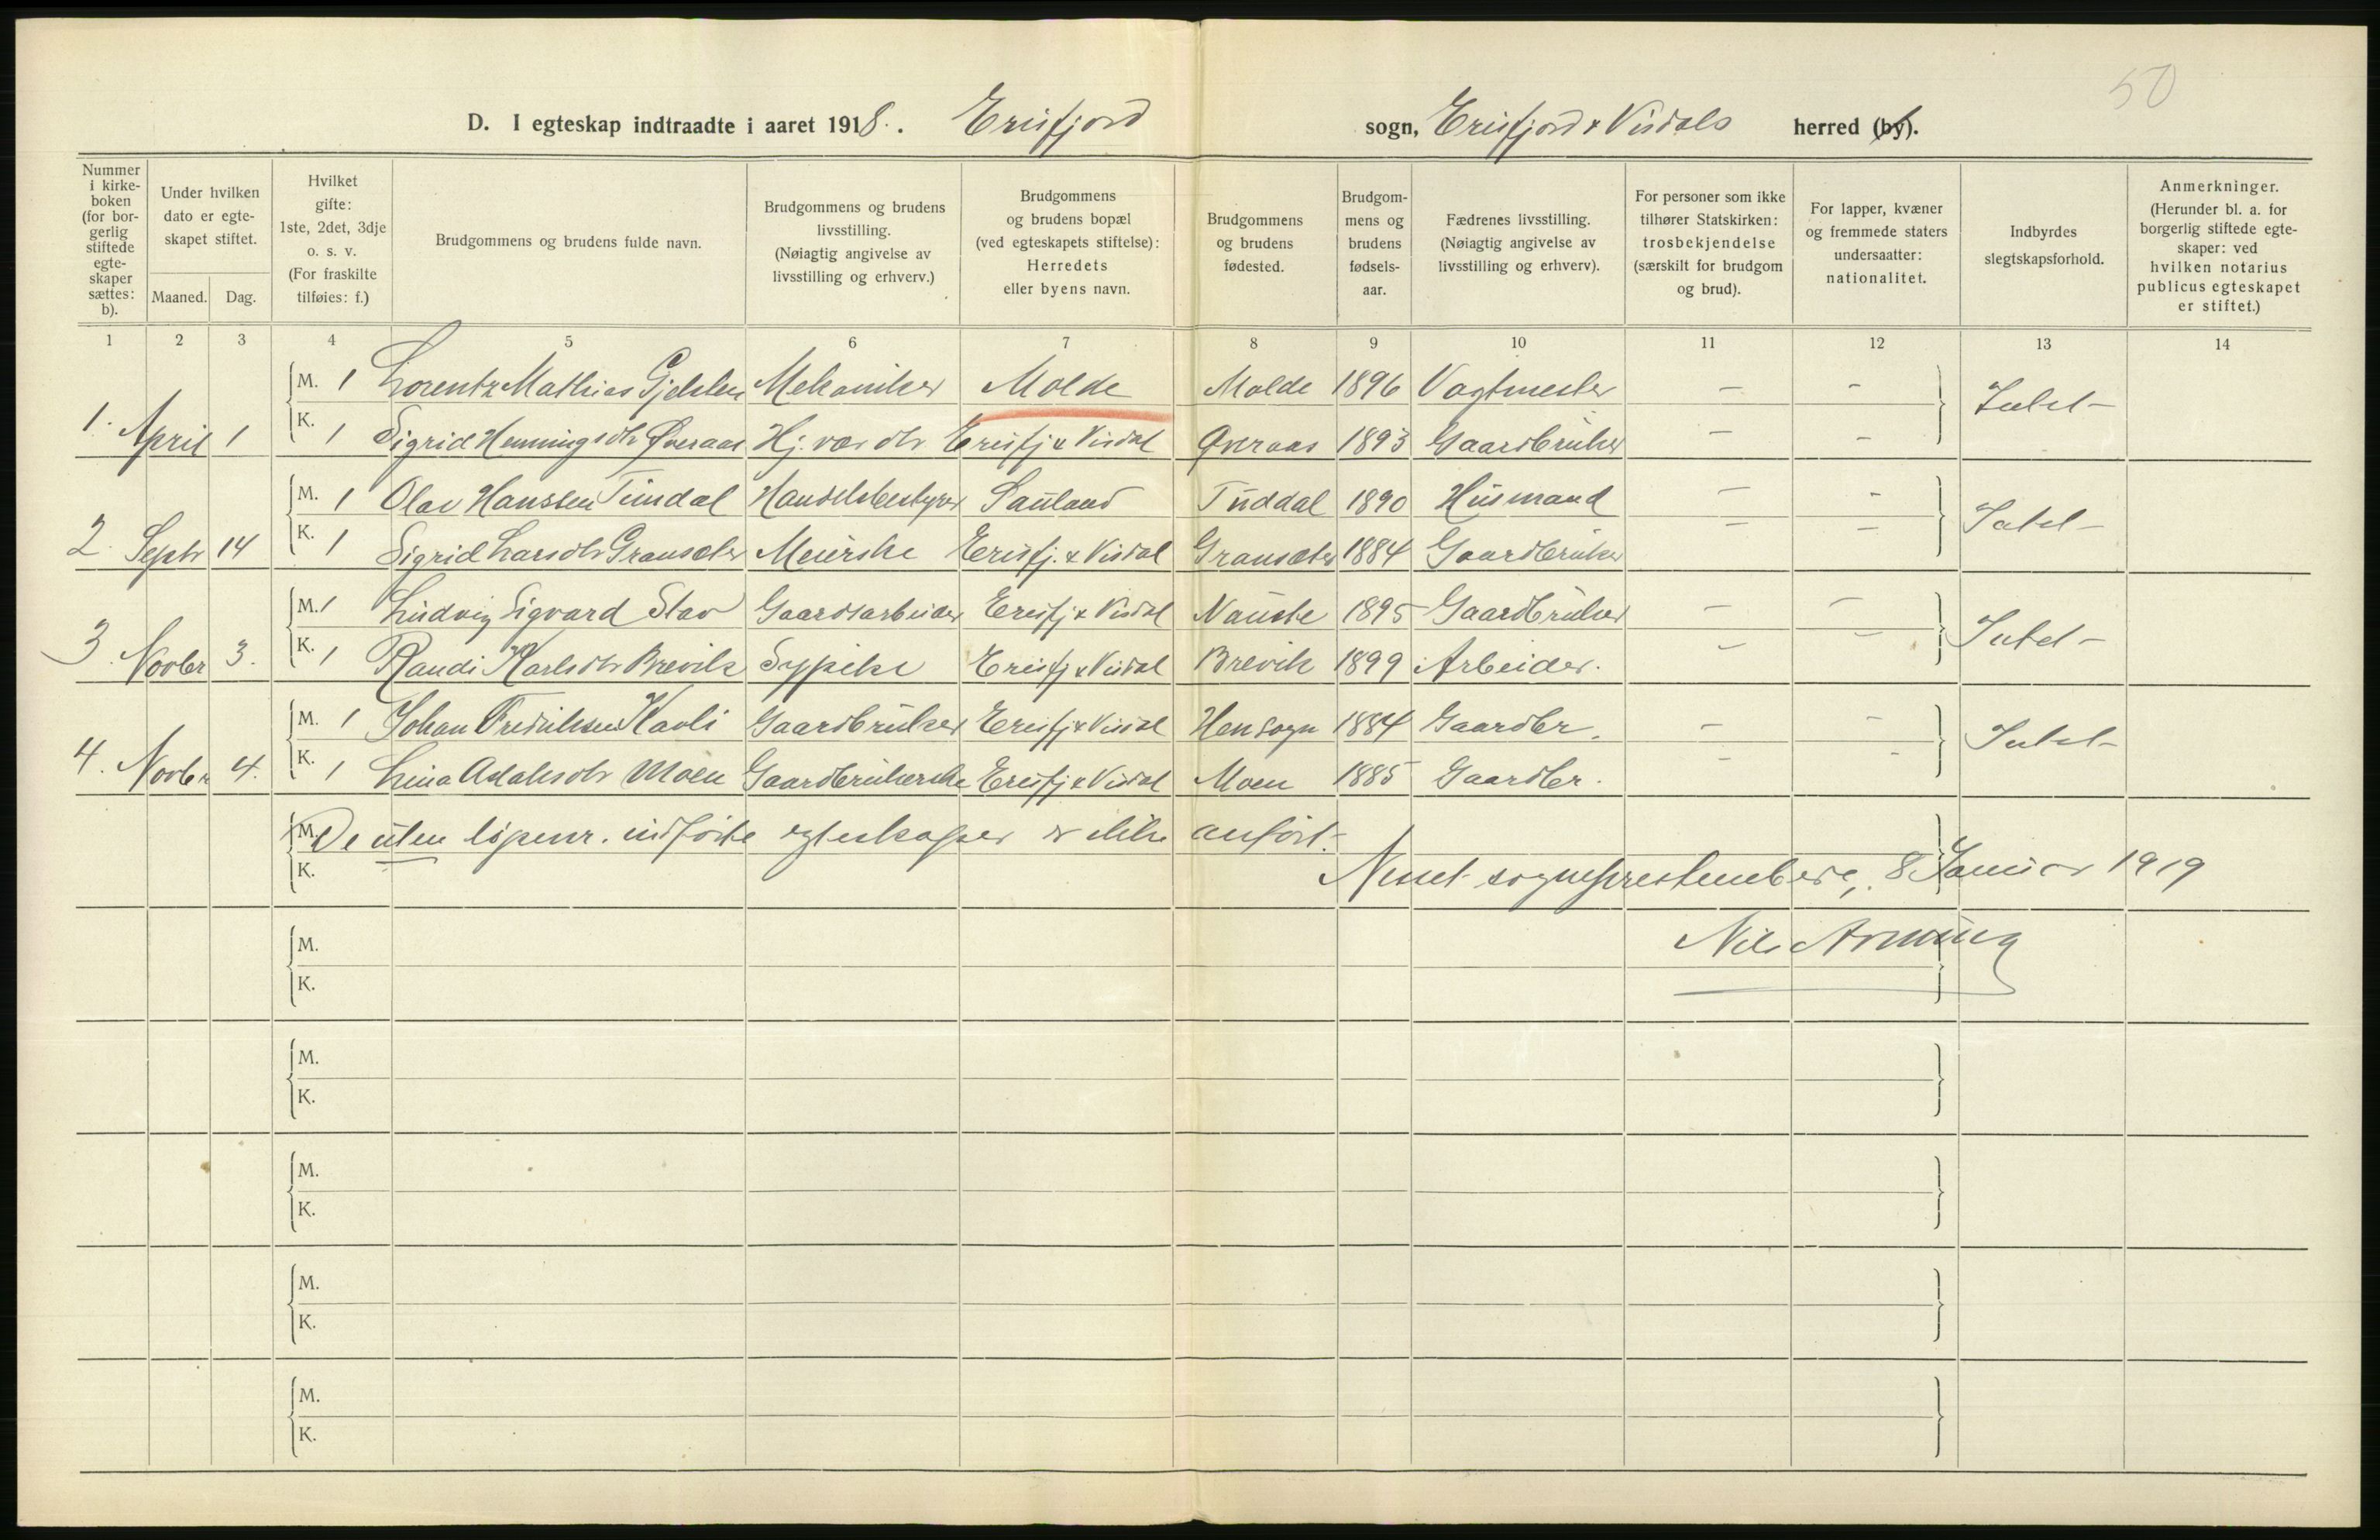 50
D. I egteskap indtraadte i aaret 1918. Eresfjord sogn, Eresfjord & Visdals herred (by).
Nummer i kirkeboken (for borgerlig stiftede egteskaper sættes: b).
Under hvilken dato er egteskapet stiftet.
Maaned. Dag.
Hvilket gifte: 1ste, 2det, 3dje o. s. v. (For fraskilte tilføies: f.)
Brudgommens og brudens fulde navn.
Brudgommens og brudens livsstilling. (Nøiagtig angivelse av livsstilling og erhverv.)
Brudgommens og brudens bopæl (ved egteskapets stiftelse): Herredets eller byens navn.
Brudgommens og brudens fødested.
Brudgommens og brudens fødselsaar.
Fædrenes livsstilling. (Nøiagtig angivelse av livsstilling og erhverv).
For personer som ikke tilhører Statskirken: trosbekjendelse (særskilt for brudgom og brud).
For lapper, kvæner og fremmede staters undersaatter: nationalitet.
Indbyrdes slegtskapsforhold.
Anmerkninger. (Herunder bl. a. for borgerlig stiftede egteskaper: ved hvilken notarius publicus egteskapet er stiftet.)
1 2 3 4 5 6 7 8 9 10 11 12 13 14
M. 1 Lorentz Mathias Gjelsten Mekaniker Molde Molde 1896 Vagtmester – – Intet –
1. April 1 K. 1 Sigrid Henningsdtr Øveraas Hj. vær. dtr Eresfj & Visdal Øveraas 1893 Gaardbruker – –
M. 1 Olav Hanssen Tuddal Handelsbestyrer Sauland Tuddal 1890 Husmand – – Intet –
2. Septr 14 K. 1 Sigrid Larsdtr Gransæter Meierske Eresfj. & Visdal Gransæter 1884 Gaardbruker – –
M. 1 Ludvig Sigvard Stav Gaardsarbeider Eresfj & Visdal Nauste 1895 Gaardbruker – – Intet –
3. Novbr 3. K. 1 Randi Karlsdtr Brevik Sypike Eresfj & Visdal Brevik 1899 Arbeider. – –
M. 1 Johan Fredriksen Kavli Gaardbruker Eresfj & Visdal Hen sogn 1884 Gaardbr. – – Intet –
4. Novbr 4. K. 1 Lina Aslaksdtr Moen Gaardbrukerske Eresfj & Visdal Moen 1885 Gaardbr. – –
M. De uten løpenr. indførte egteskaper er ikke anført.
K. Nesset sogneprestembede, 8 Januar 1919
M. Nils Arming
K.
M.
K.
M.
K.
M.
K.
M.
K.